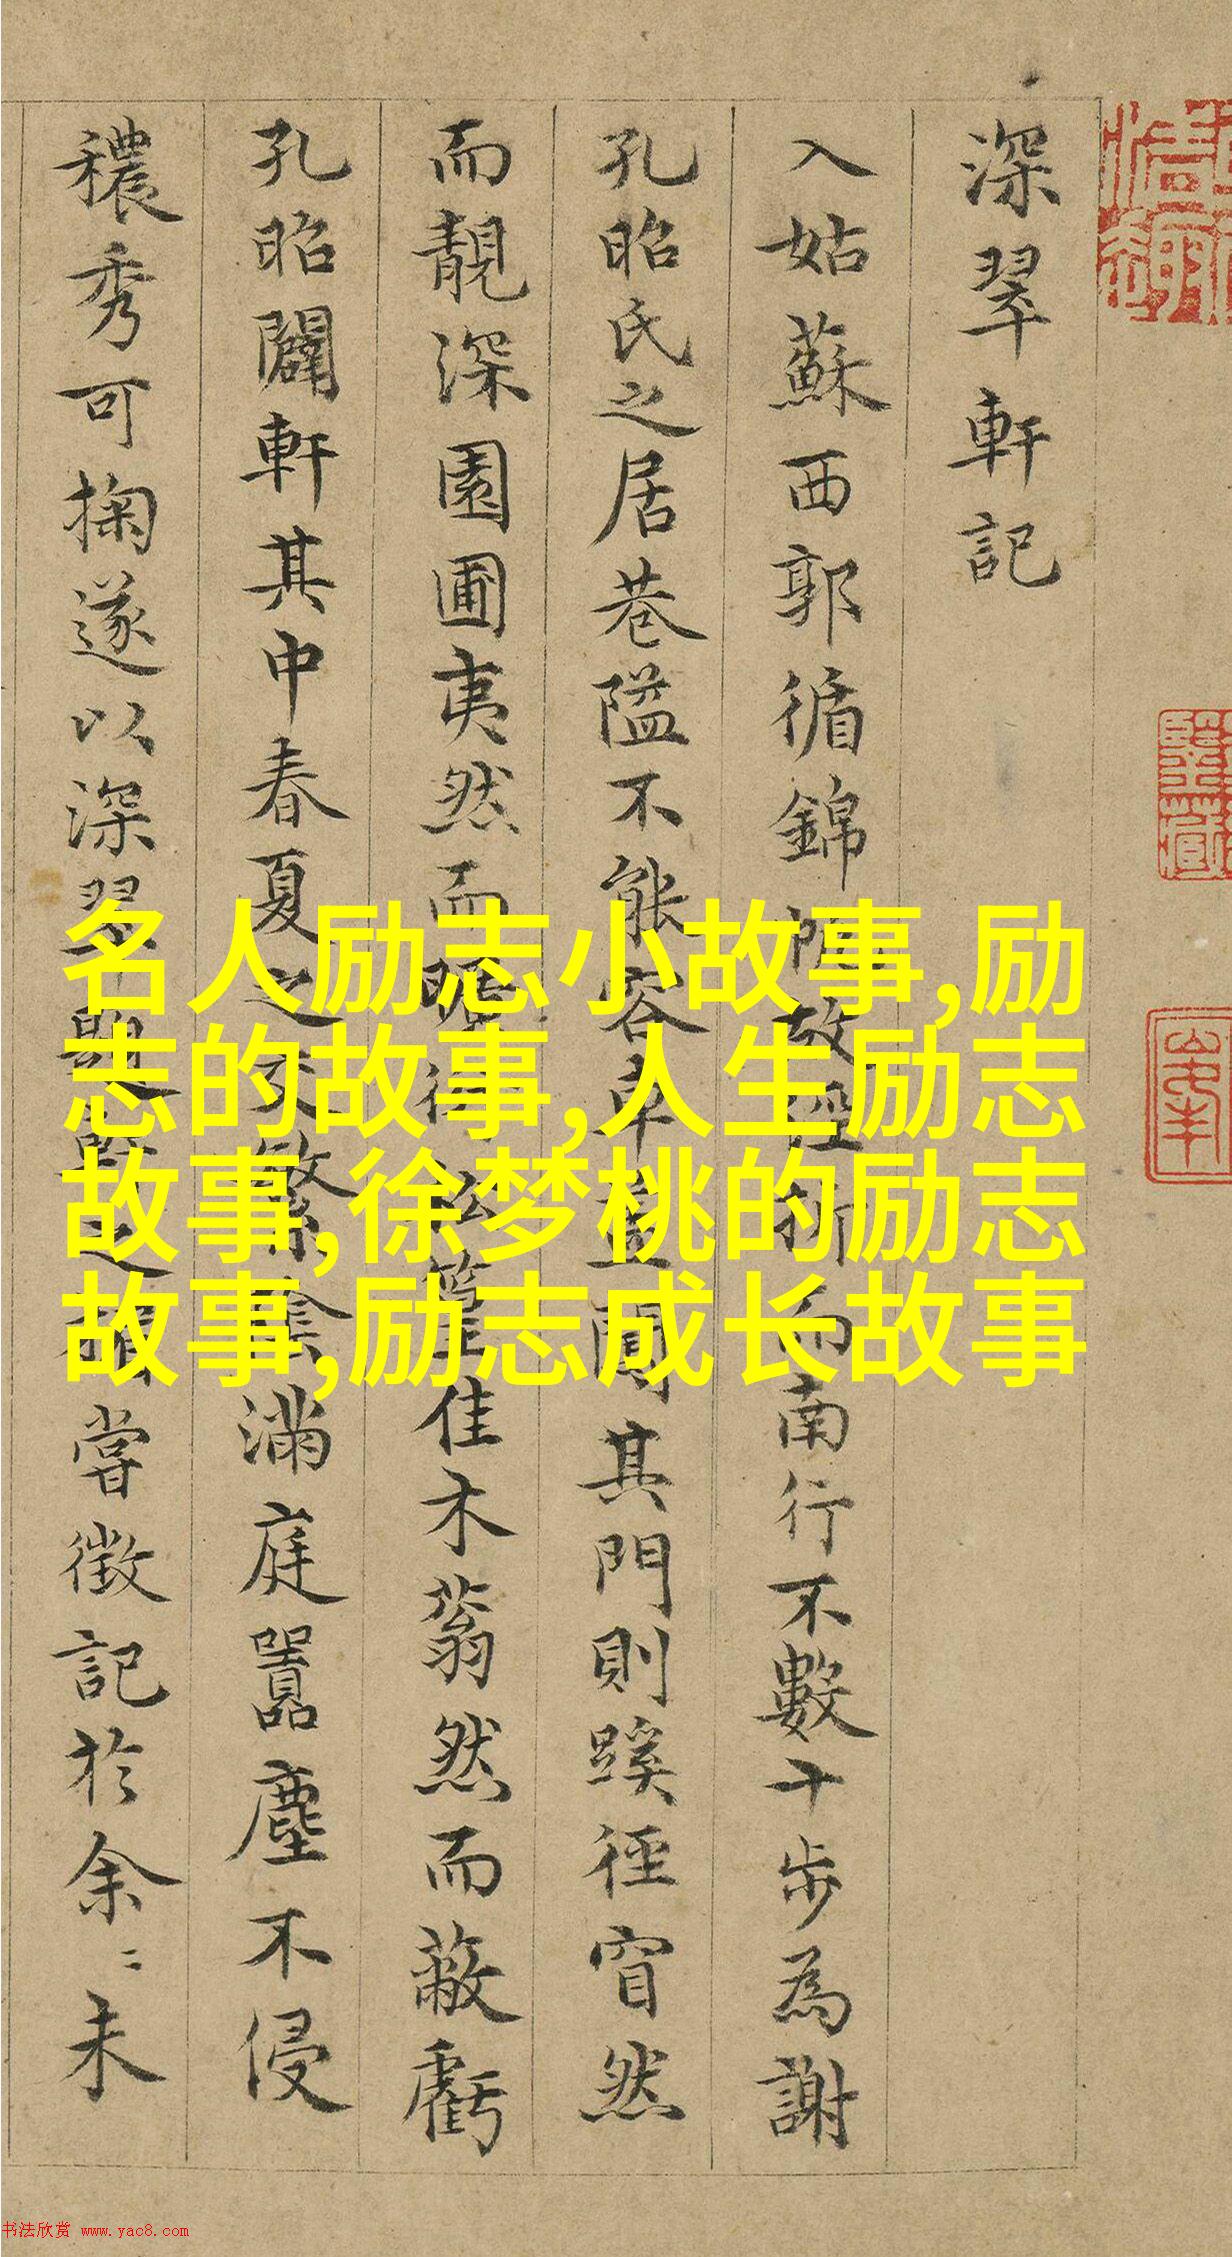 深翠軒記
入姑蘇西郭循錦
故
折而南行不數十步為謝
孔昭氏之居巷隘不能容車
其門則蹊徑窅然
而靚深園圃夷然而曠
佳木蓊然而蔽虧
孔昭闢軒其中春夏之交繁陰滿庭囂塵不侵
穠秀可掬遂以深翠題
嘗徵記於余〻未
名人励志小故事,励
志的故事,人生励志
故事,徐梦桃的励志
故事,励志成长故事
书法欣赏 www.yac8.com